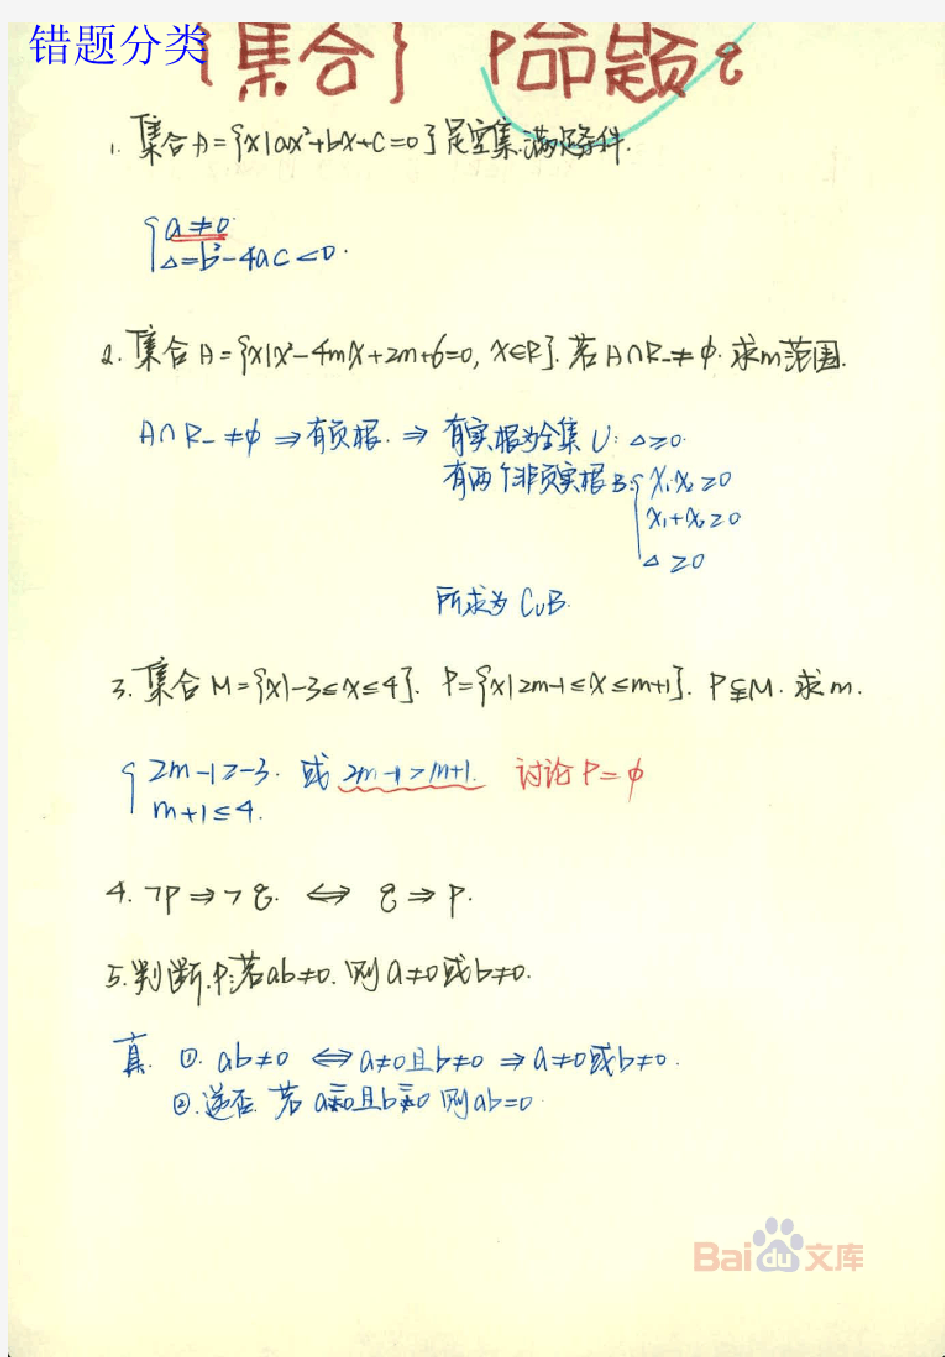 错题分类
{集合} p命题q
1. 集合A={x|ax²+bx+c=0}是空集.满足条件.
{a≠0
△=b²-4ac<0.
2. 集合A={x|x²-4mx+2m+6=0, x∈R}. 若A∩R_≠φ. 求m范围.
A∩R_≠φ ⇒有负根. ⇒ 有实根为全集U: △≥0.
有两个非负实根B:{x₁x₂≥0
x₁+x₂≥0
△≥0
所求为CᵤB.
3. 集合M={x|-3≤x≤4}. P={x|2m-1≤x≤m+1}. P⊊M. 求m.
{2m-1≥-3. 或 2m-1>m+1. 讨论P=φ
m+1≤4.
4. ¬p⇒¬q. ⇔ q⇒p.
5. 判断.p:若ab≠0. 则a≠0或b≠0.
真. ①. ab≠0 ⇔a≠0且b≠0 ⇒a≠0或b≠0.
②.逆否. 若 a=0且b=0 则ab=0.
Bai du 文库